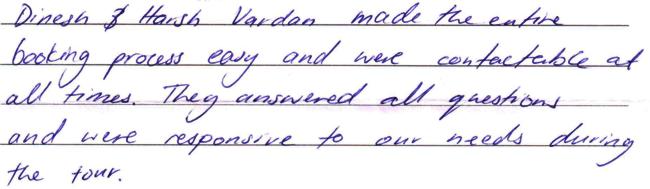 Dinesh & Harsh Vardan made the entire
booking process easy and were contactable at
all times. They answered all questions
and were responsive to our needs during
the tour.